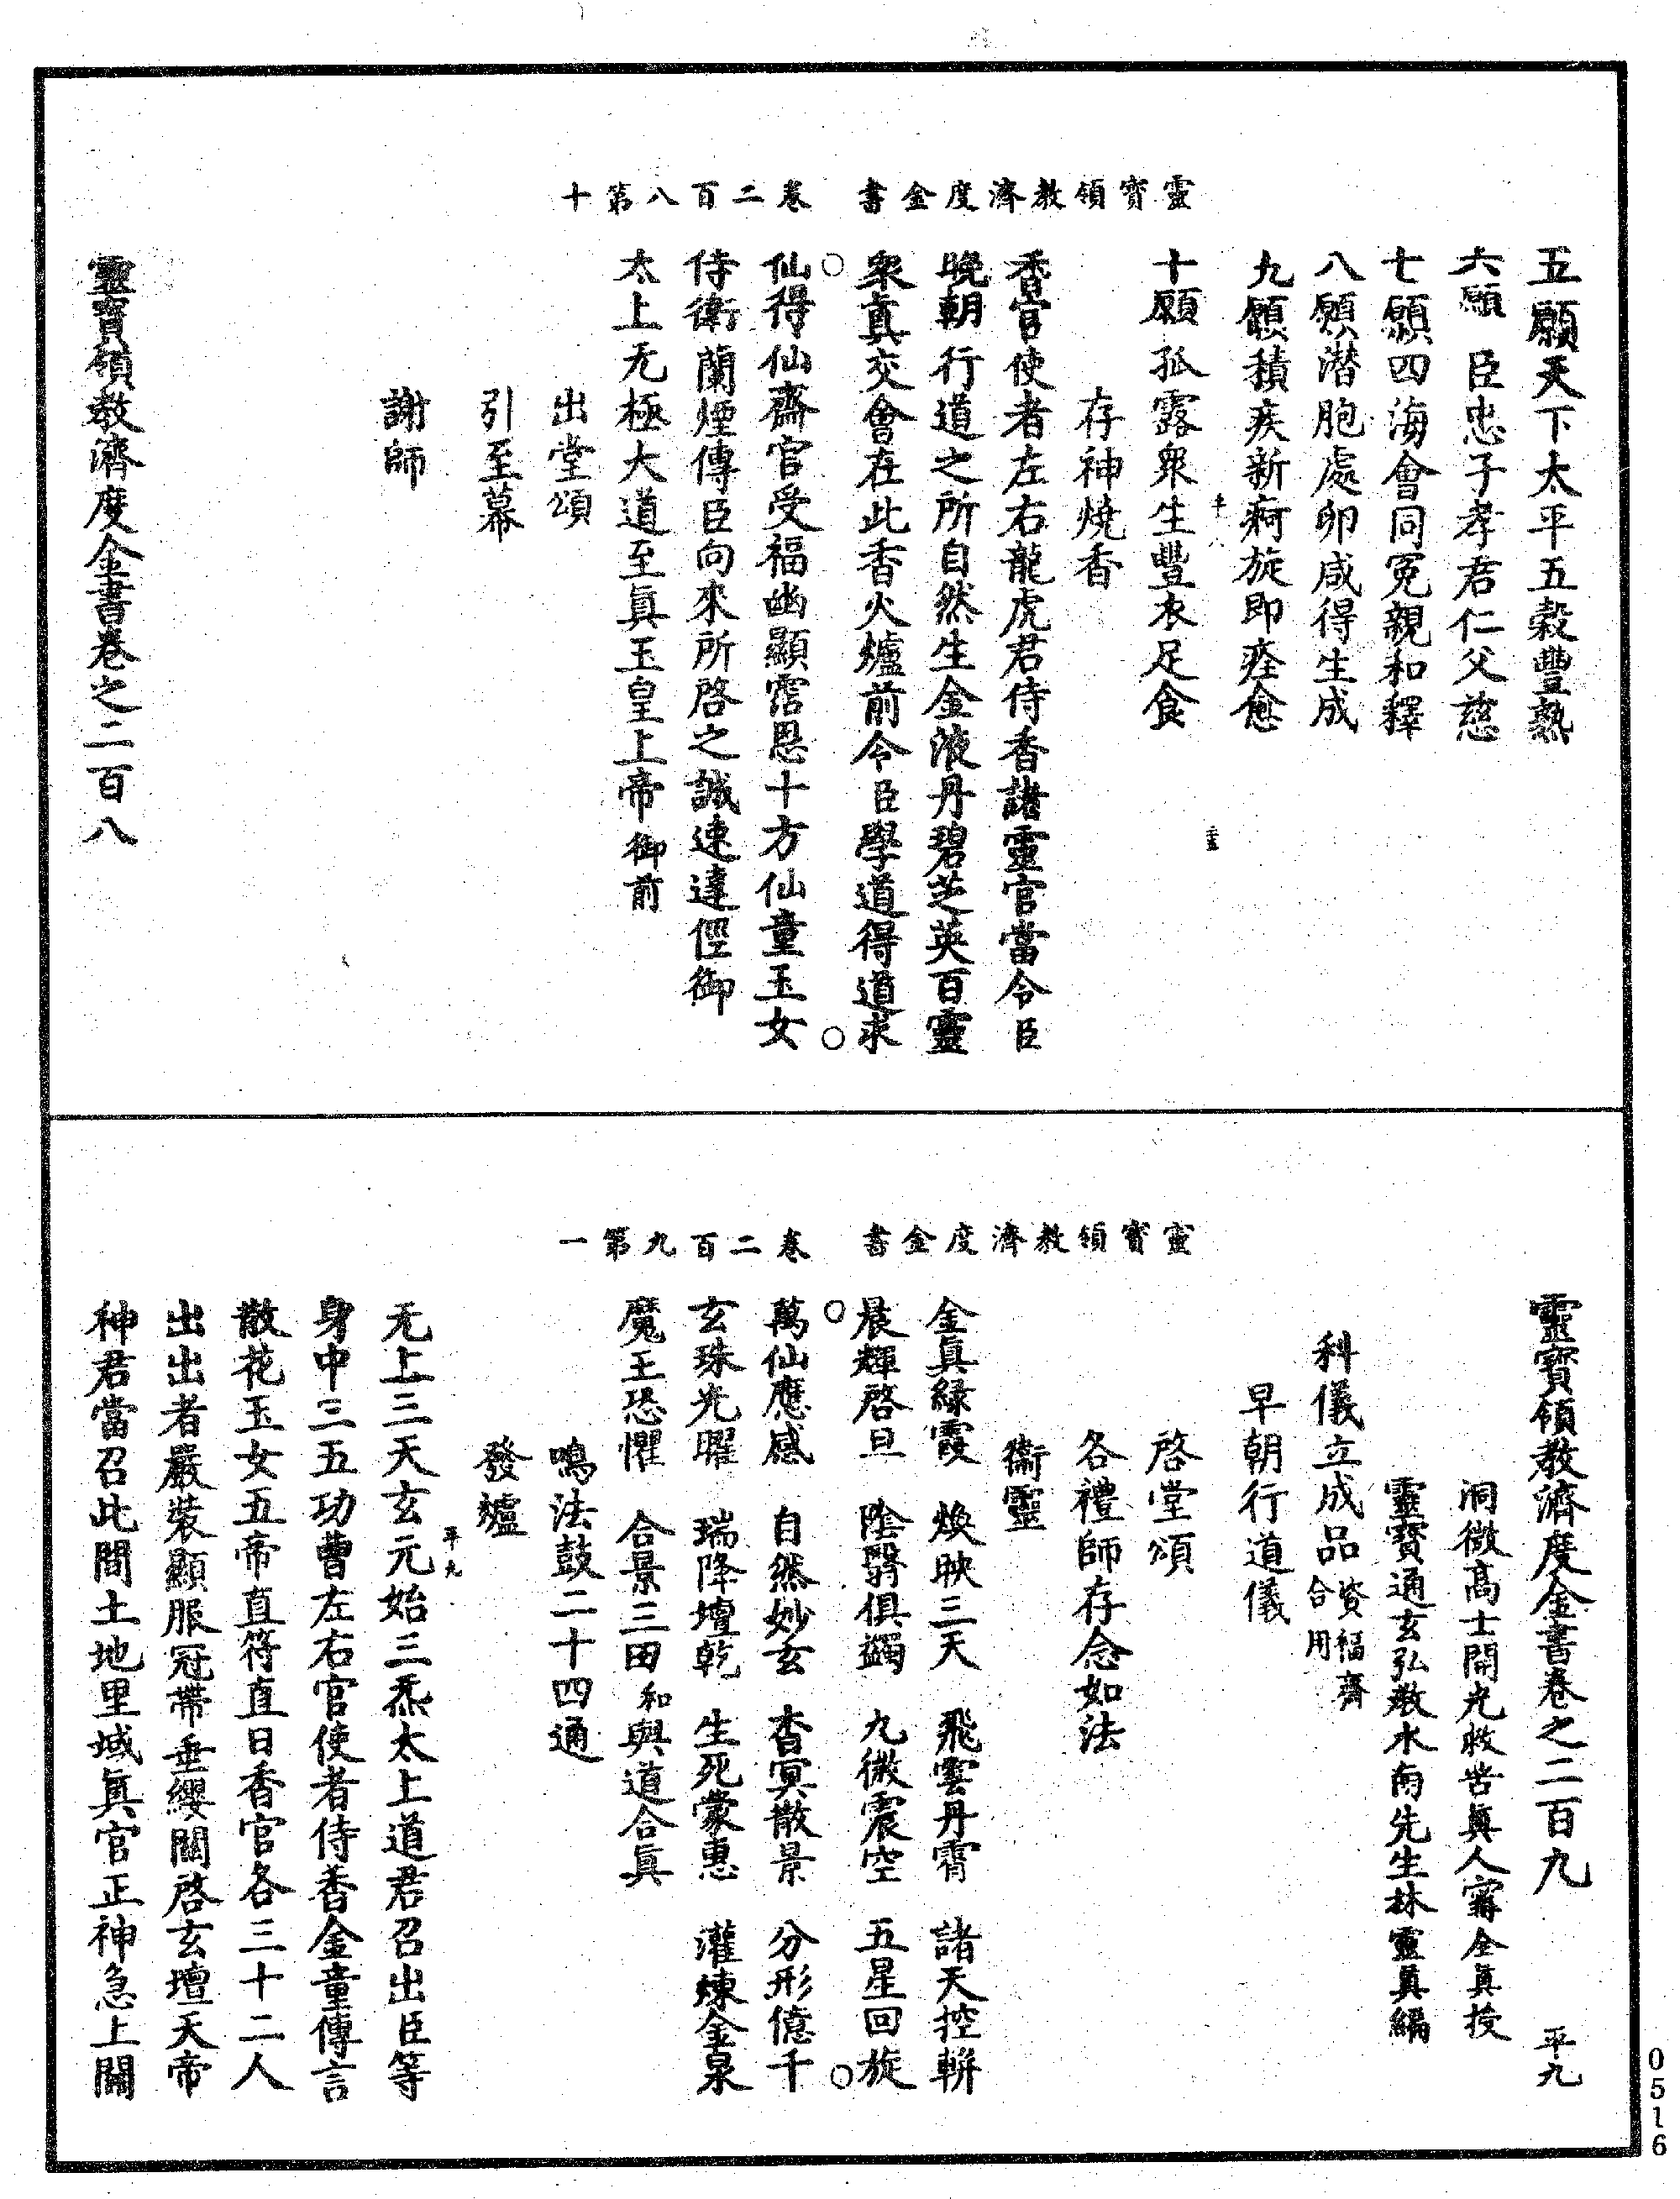 靈寶領教濟度金書　卷二百八第十
五願天下太平五穀豐熟
六願臣忠子孝君仁父慈
七願四海會同冤親和釋
八願潛胞處卵咸得生成
九願積疾新痾旋即痊愈
十願孤露衆生豐衣足食
存神燒香
香官使者左右龍虎君侍香諸靈官當令臣
晚朝行道之所自然生金液丹碧芝英百靈
衆眞交會在此香火爐前令臣學道得道求
仙得仙齋官受福幽顯霑恩十方仙童玉女
侍衛蘭煙傳臣向來所啓之誠速達徑御
太上无極大道至眞玉皇上帝御前
出堂頌
引至幕
謝師
靈寶領教濟度金書卷之二百八
靈寶領教濟度金書　卷二百九第一
靈寶領教濟度金書卷之二百九　平九
洞微高士開光救苦眞人甯全眞授
靈寶通玄弘教水南先生林靈眞編
科儀立成品資福齋合用
早朝行道儀
啓堂頌
各禮師存念如法
衞靈
金眞緑霞　煥映三天　飛雲丹霄　諸天控軿
晨輝啓旦　陰翳俱蠲　九微震空　五星回旋
萬仙應感　自然妙玄　杳冥散景　分形億千
玄珠光曜　瑞降壇乾　生死蒙惠　灌煉金泉
魔王恐懼　合景三田　和與道合眞
鳴法鼓二十四通
發爐
平九
无上三天玄元始三炁太上道君召出臣等
身中三五功曹左右官使者侍香金童傳言
散花玉女五帝直符直日香官各三十二人
出出者嚴裝顯服冠帶垂纓關啓玄壇天帝
神君當召此間土地里域眞官正神急上關
0516